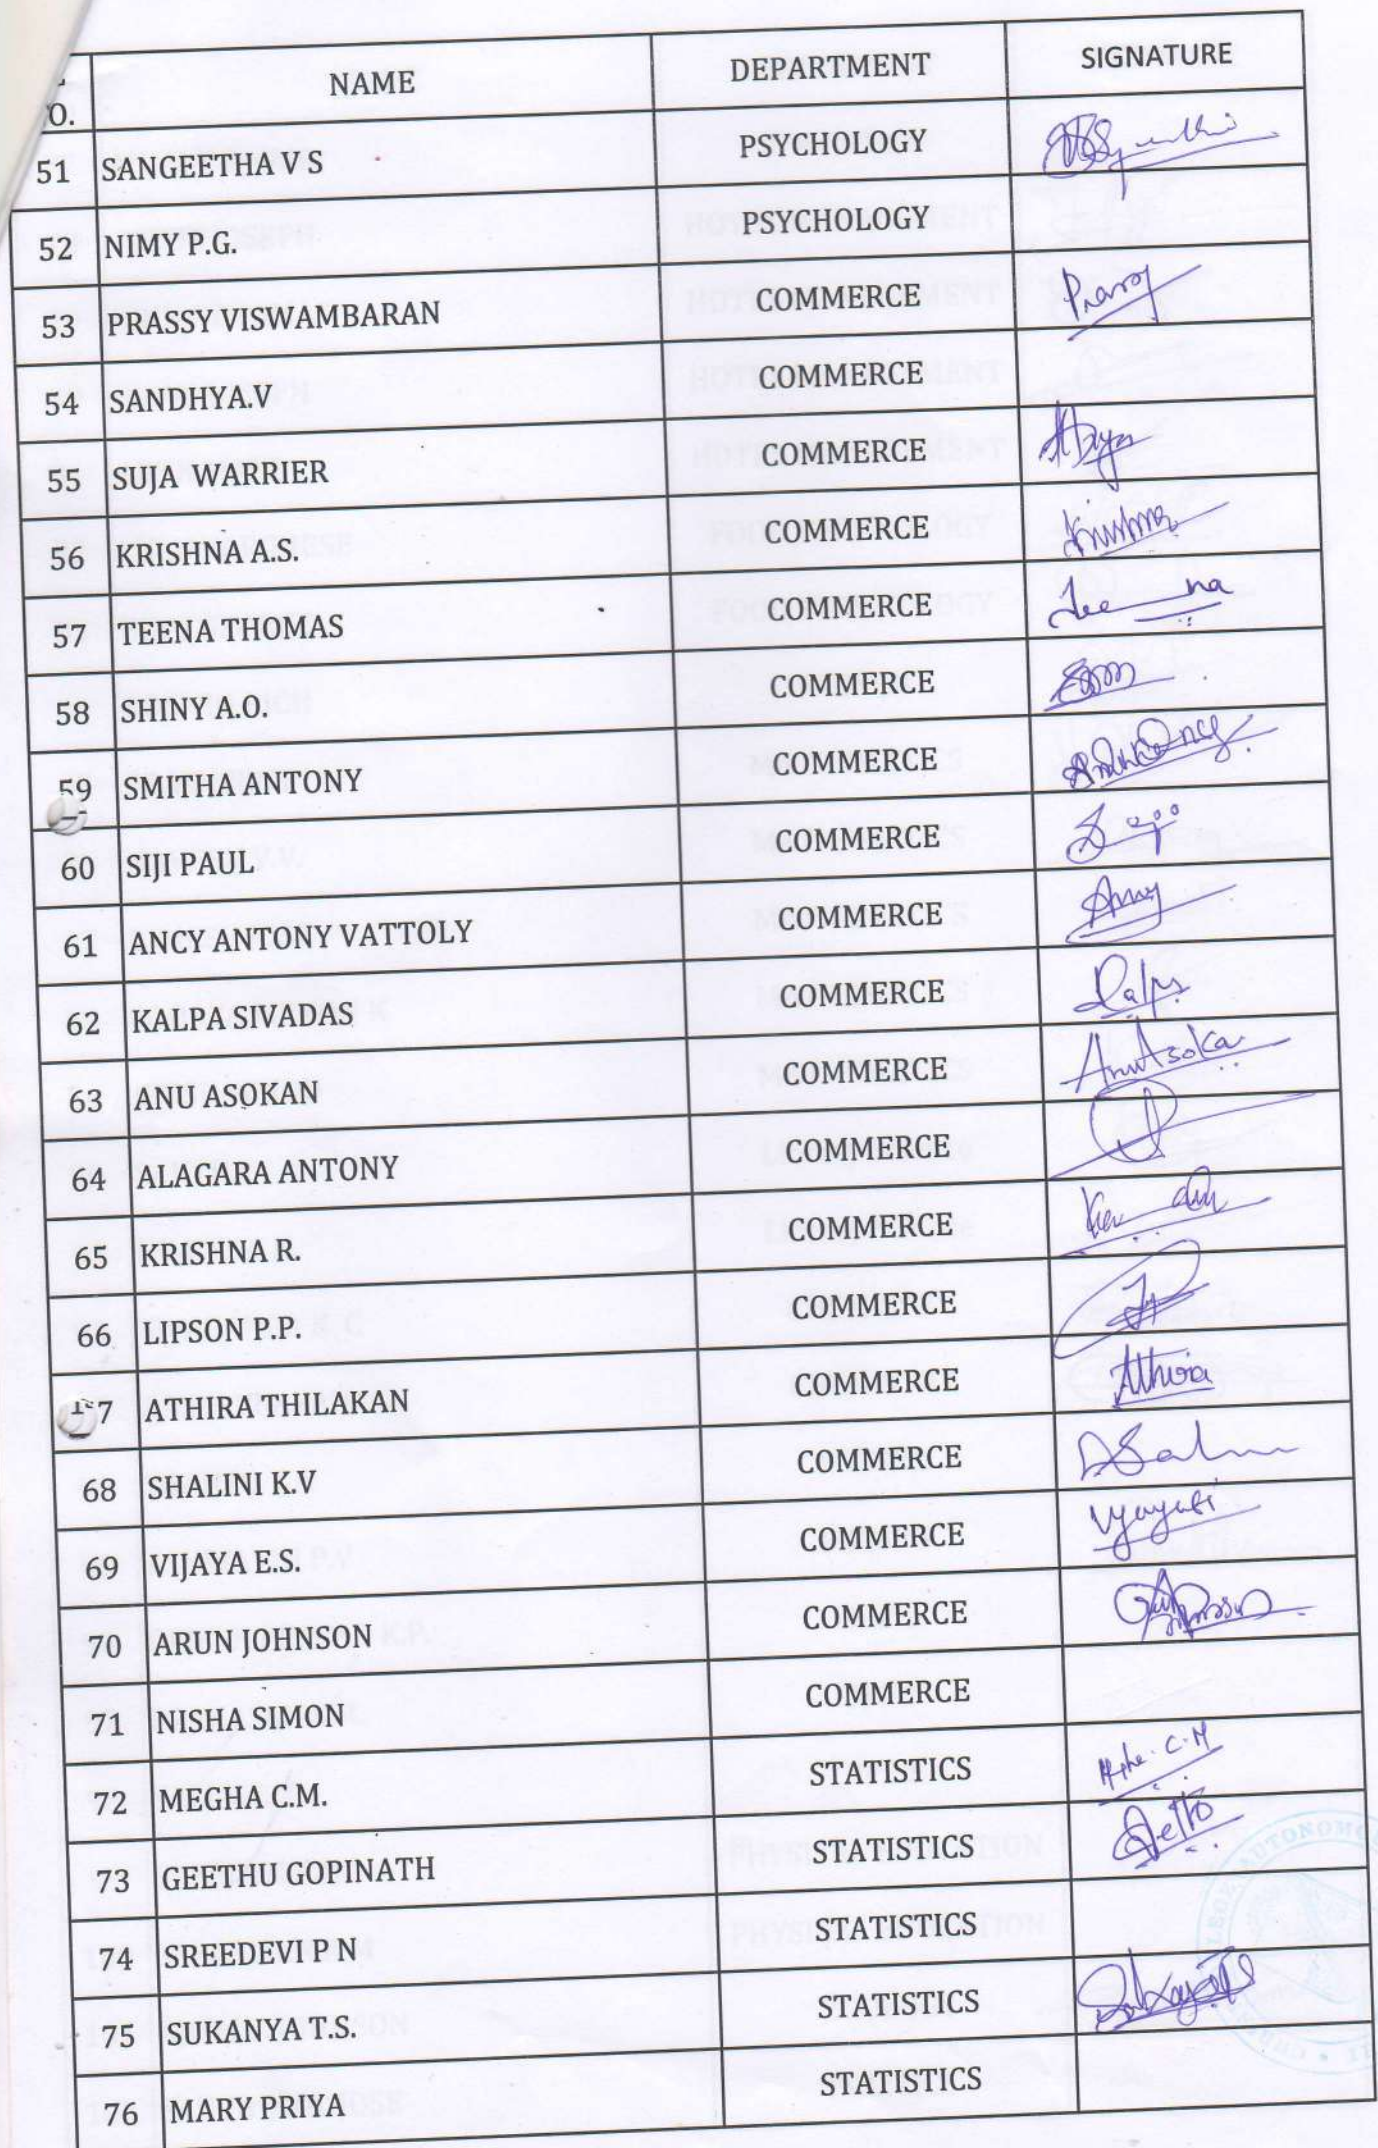 O. NAME DEPARTMENT SIGNATURE
51 SANGEETHA V S PSYCHOLOGY
52 NIMY P.G. PSYCHOLOGY
53 PRASSY VISWAMBARAN COMMERCE Prassy
54 SANDHYA.V COMMERCE
55 SUJA WARRIER COMMERCE
56 KRISHNA A.S. COMMERCE Krishna
57 TEENA THOMAS COMMERCE Tee na
58 SHINY A.O. COMMERCE
59 SMITHA ANTONY COMMERCE
60 SIJI PAUL COMMERCE
61 ANCY ANTONY VATTOLY COMMERCE Ancy
62 KALPA SIVADAS COMMERCE Kalpa
63 ANU ASOKAN COMMERCE Anu Asokan
64 ALAGARA ANTONY COMMERCE
65 KRISHNA R. COMMERCE
66 LIPSON P.P. COMMERCE
7 ATHIRA THILAKAN COMMERCE Athira
68 SHALINI K.V COMMERCE
69 VIJAYA E.S. COMMERCE
70 ARUN JOHNSON COMMERCE
71 NISHA SIMON COMMERCE
72 MEGHA C.M. STATISTICS
73 GEETHU GOPINATH STATISTICS
74 SREEDEVI P N STATISTICS
75 SUKANYA T.S. STATISTICS
76 MARY PRIYA STATISTICS